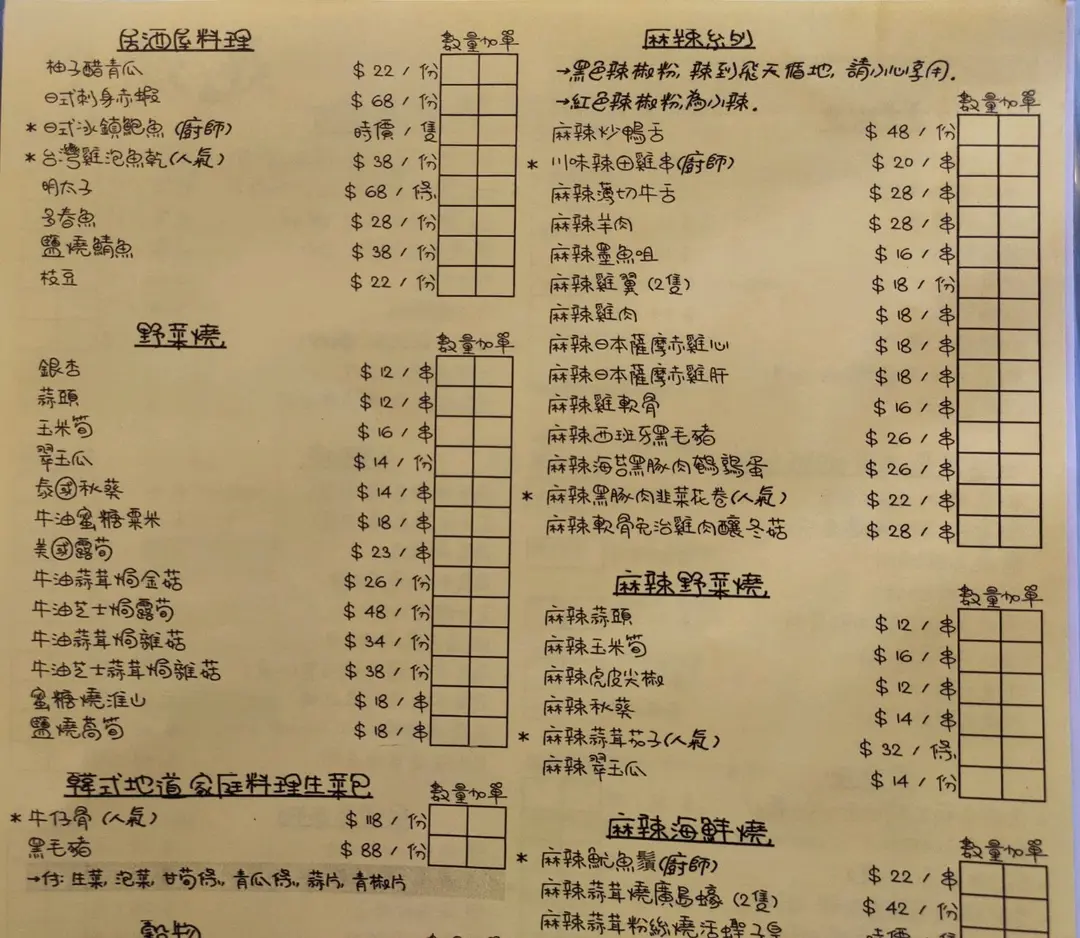 居酒屋料理 數量 加單
柚子醋青瓜 $ 22 / 份
日式刺身赤蝦 $ 68 / 份
* 日式冰鎮鮑魚 (廚師) 時價 / 隻
* 台灣雞泡魚乾 (人氣) $ 38 / 份
明太子 $ 68 / 條
多春魚 $ 28 / 份
鹽燒鯖魚 $ 38 / 份
枝豆 $ 22 / 份
野菜燒 數量 加單
銀杏 $ 12 / 串
蒜頭 $ 12 / 串
玉米筍 $ 16 / 串
翠玉瓜 $ 14 / 份
泰國秋葵 $ 14 / 串
牛油蜜糖粟米 $ 18 / 串
美國露荀 $ 23 / 串
牛油蒜茸焗金菇 $ 26 / 份
牛油芝士焗露荀 $ 48 / 份
牛油蒜茸焗雜菇 $ 34 / 份
牛油芝士蒜茸焗雜菇 $ 38 / 份
蜜糖燒淮山 $ 18 / 串
鹽燒萵筍 $ 18 / 串
韓式地道家庭料理生菜包 數量 加單
* 牛仔骨 (人氣) $ 118 / 份
黑毛豬 $ 88 / 份
→付: 生菜, 泡菜, 甘荀條, 青瓜條, 蒜片, 青椒片
麻辣系列
→黑色辣椒粉, 辣到飛天循地, 請小心享用.
→紅色辣椒粉,為小辣. 數量 加單
麻辣炒鴨舌 $ 48 / 份
* 川味辣田雞串(廚師) $ 20 / 串
麻辣薄切牛舌 $ 28 / 串
麻辣羊肉 $ 28 / 串
麻辣墨魚咀 $ 16 / 串
麻辣雞翼 (2隻) $ 18 / 份
麻辣雞肉 $ 18 / 串
麻辣日本薩摩赤雞心 $ 18 / 串
麻辣日本薩摩赤雞肝 $ 18 / 串
麻辣雞軟骨 $ 16 / 串
麻辣西班牙黑毛豬 $ 26 / 串
麻辣海苔黑豚肉鵪鶉蛋 $ 26 / 串
* 麻辣黑豚肉韭菜花卷(人氣) $ 22 / 串
麻辣軟骨免治雞肉釀冬菇 $ 28 / 串
麻辣野菜燒 數量 加單
麻辣蒜頭 $ 12 / 串
麻辣玉米筍 $ 16 / 串
麻辣虎皮尖椒 $ 12 / 串
麻辣秋葵 $ 14 / 串
* 麻辣蒜茸茄子(人氣) $ 32 / 條
麻辣翠玉瓜 $ 14 / 份
麻辣海鮮燒 數量 加單
* 麻辣魷魚鬚(廚師) $ 22 / 串
麻辣蒜茸燒廣島蠔 (2隻) $ 42 / 份
麻辣蒜茸粉絲燒活蟶子皇